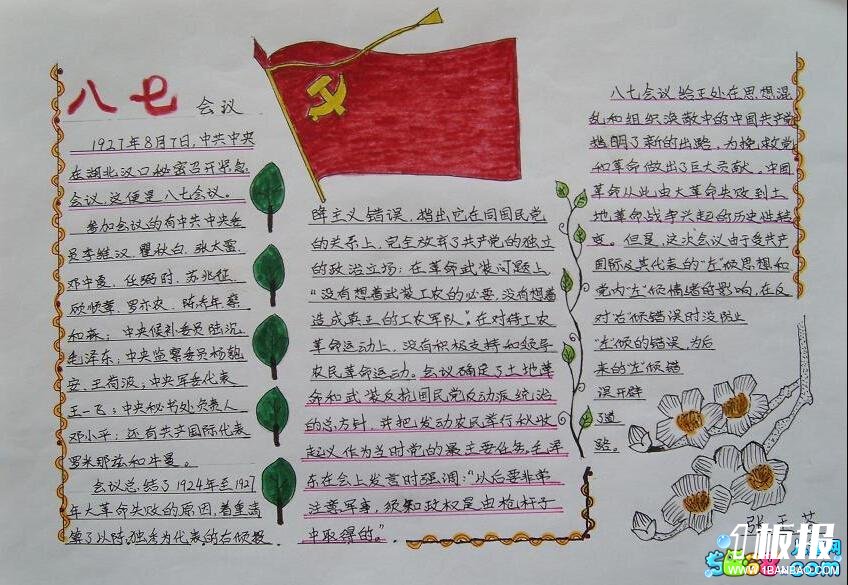 八七会议
1927年8月7日,中共中央
在湖北汉口秘密召开紧急
会议,这便是八七会议。
参加会议的有中共中央委
员李维汉、瞿秋白、张太雷、
邓中夏、任弼时、苏兆征、
顾顺章、罗亦农、陈乔年、蔡
和森;中央候补委员陆沉、
毛泽东;中央监察委员杨匏
安、王荷波;中央军委代表
王一飞;中央秘书处负责人
邓小平;还有共产国际代表
罗米那兹和牛曼。
会议总结了1924年至1927
年大革命失败的原因,着重清
算了以陈独秀为代表的右倾投
降主义错误,指出它在同国民党
的关系上,完全放弃了共产党的独立
的政治立场;在革命武装问题上
“没有想着武装工农的必要,没有想着
造成真正的工农军队”。在对待工农
革命运动上,没有积极支持和领导
农民革命运动。会议确定了土地革
命和武装反抗国民党反动派统治
的总方针,并把发动农民举行秋收
起义作为当时党的最主要任务。毛泽
东在会上发言时强调:“以后要非常
注意军事,须知政权是由枪杆子
中取得的。”
八七会议给正处在思想混
乱和组织涣散中的中国共产党
指明了新的出路,为挽救党
和革命做出了巨大贡献。中国
革命从此由大革命失败到土
地革命战争兴起的历史性转
变。但是,这次会议由于受共产
国际及其代表的“左”倾思想和
党内“左”倾情绪的影响,在反
对右倾错误时没防止
“左”倾的错误,为后
来的“左”倾错
误开辟
了道
路。
板报
WWW.1BANBAO.COM